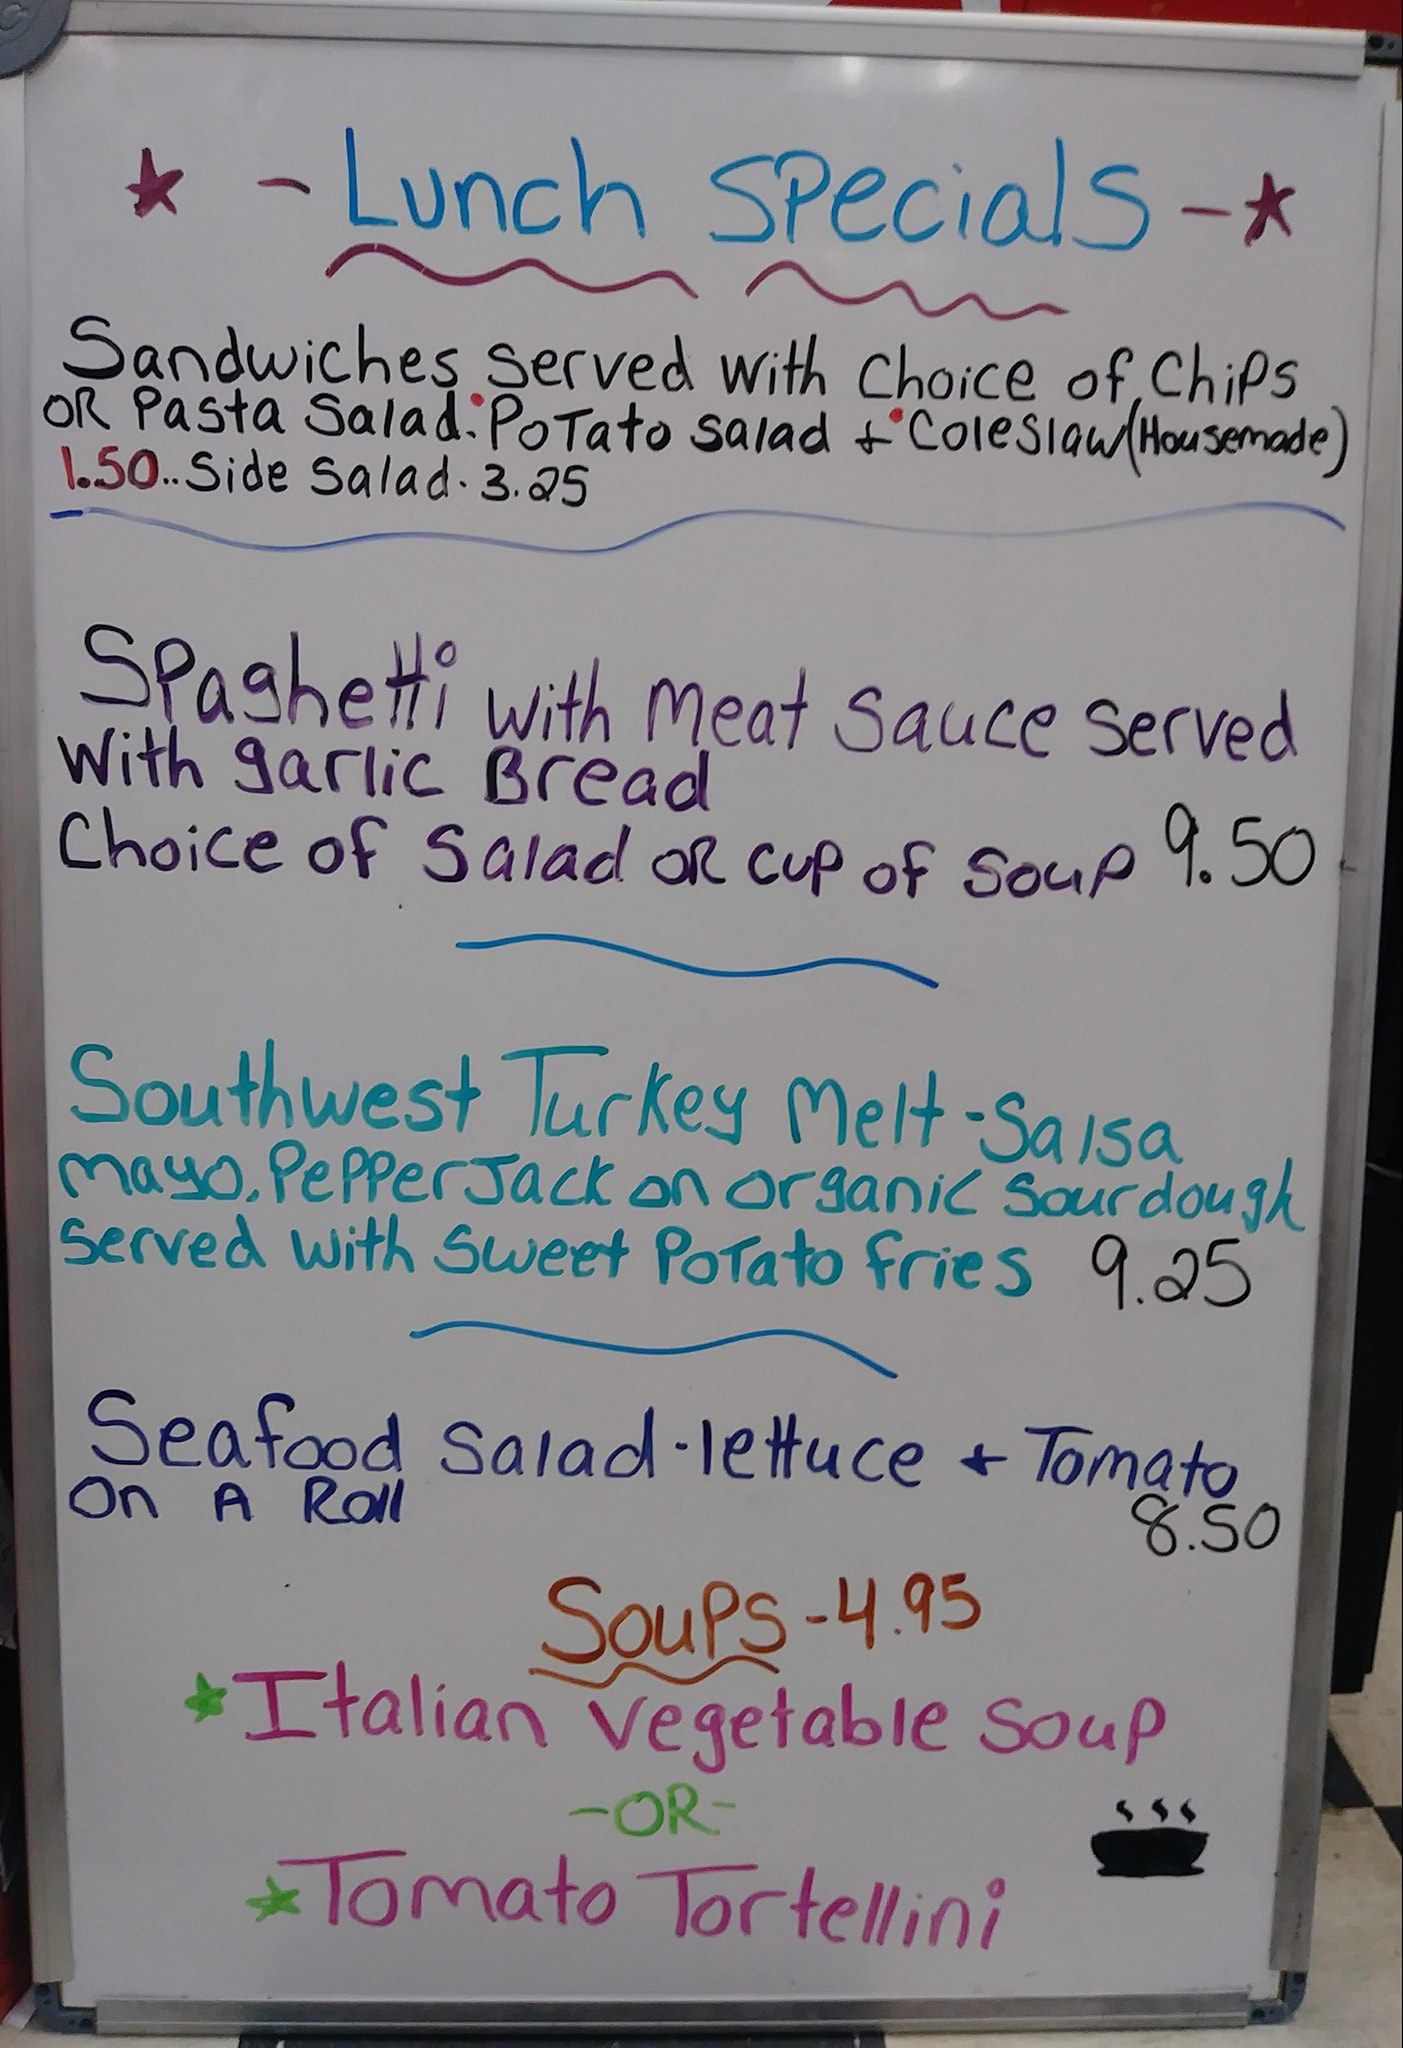 - Lunch Specials -
Sandwiches served with choice of chips
OR Pasta salad. Potato salad + Coleslaw (Housemade)
1.50.. Side salad. 3.25
Spaghetti with meat sauce served
with garlic Bread
Choice of salad OR cup of soup 9.50
Southwest Turkey melt - Salsa
mayo, Pepper Jack on organic sourdough
served with sweet Potato fries 9.25
Seafood salad - lettuce + Tomato
On A Roll
8.50
Soups - 4.95
Italian vegetable soup
-OR-
Tomato Tortellini